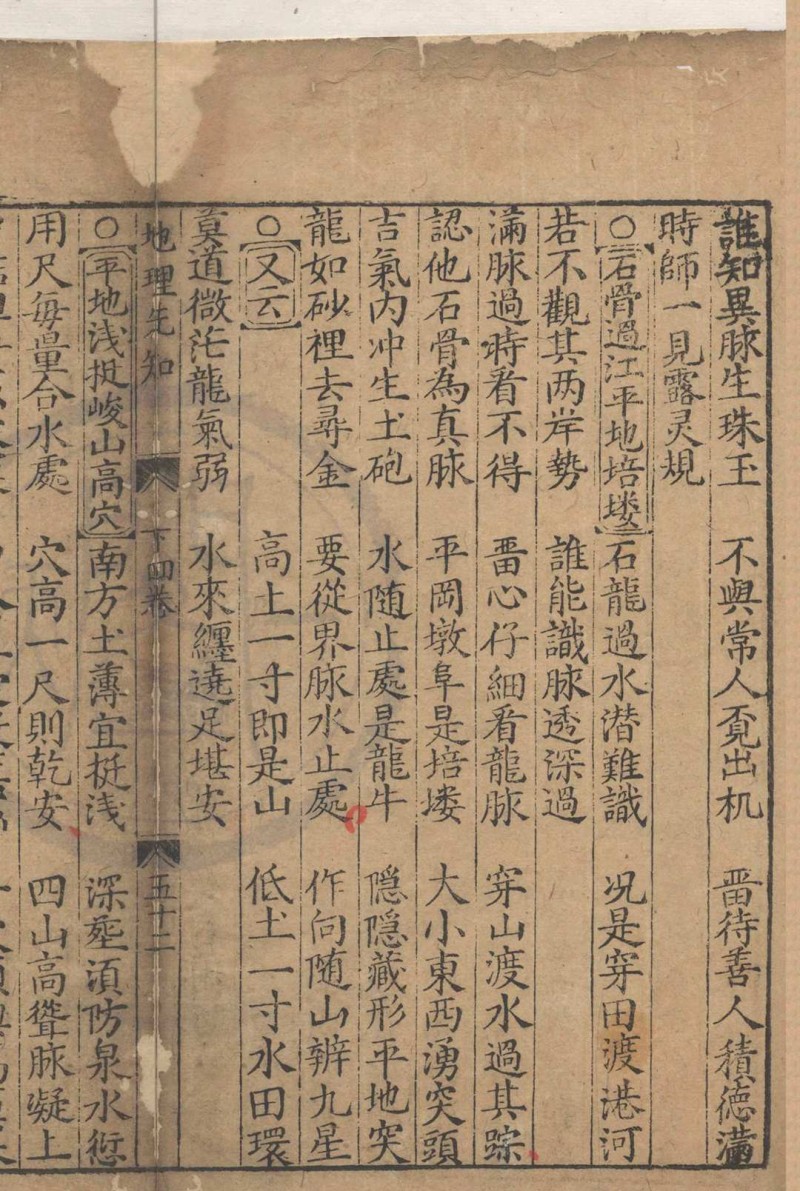 誰知異脉生珠玉 不與常人覔出机 畱待善人積德滿
時師一見露灵規
○石骨過江平地培塿 石龍過水潜難識 况是穿田渡港河
若不觀其两岸勢 誰能識脉透深過
滿脉過時看不得 畱心仔細看龍脉 穿山渡水過其踪
認他石骨為真脉 平岡墩阜是培塿 大小東西湧突頭
吉氣内冲生圡砲 水随止處是龍牛 隐隐藏形平地突
龍如砂裡去尋金 要從界脉水止處 作向随山辨九星
○又云 高土一寸即是山 低圡一寸水田環
真道微茫龍氣弱 水來纒遶足堪安
地理先知 下四卷 五十二
○平地浅挺峻山高穴 南方圡薄宜挺浅 深塟湏防泉水愆
用尺每量合水處 穴高一尺則乾安 四山高聳脉凝上